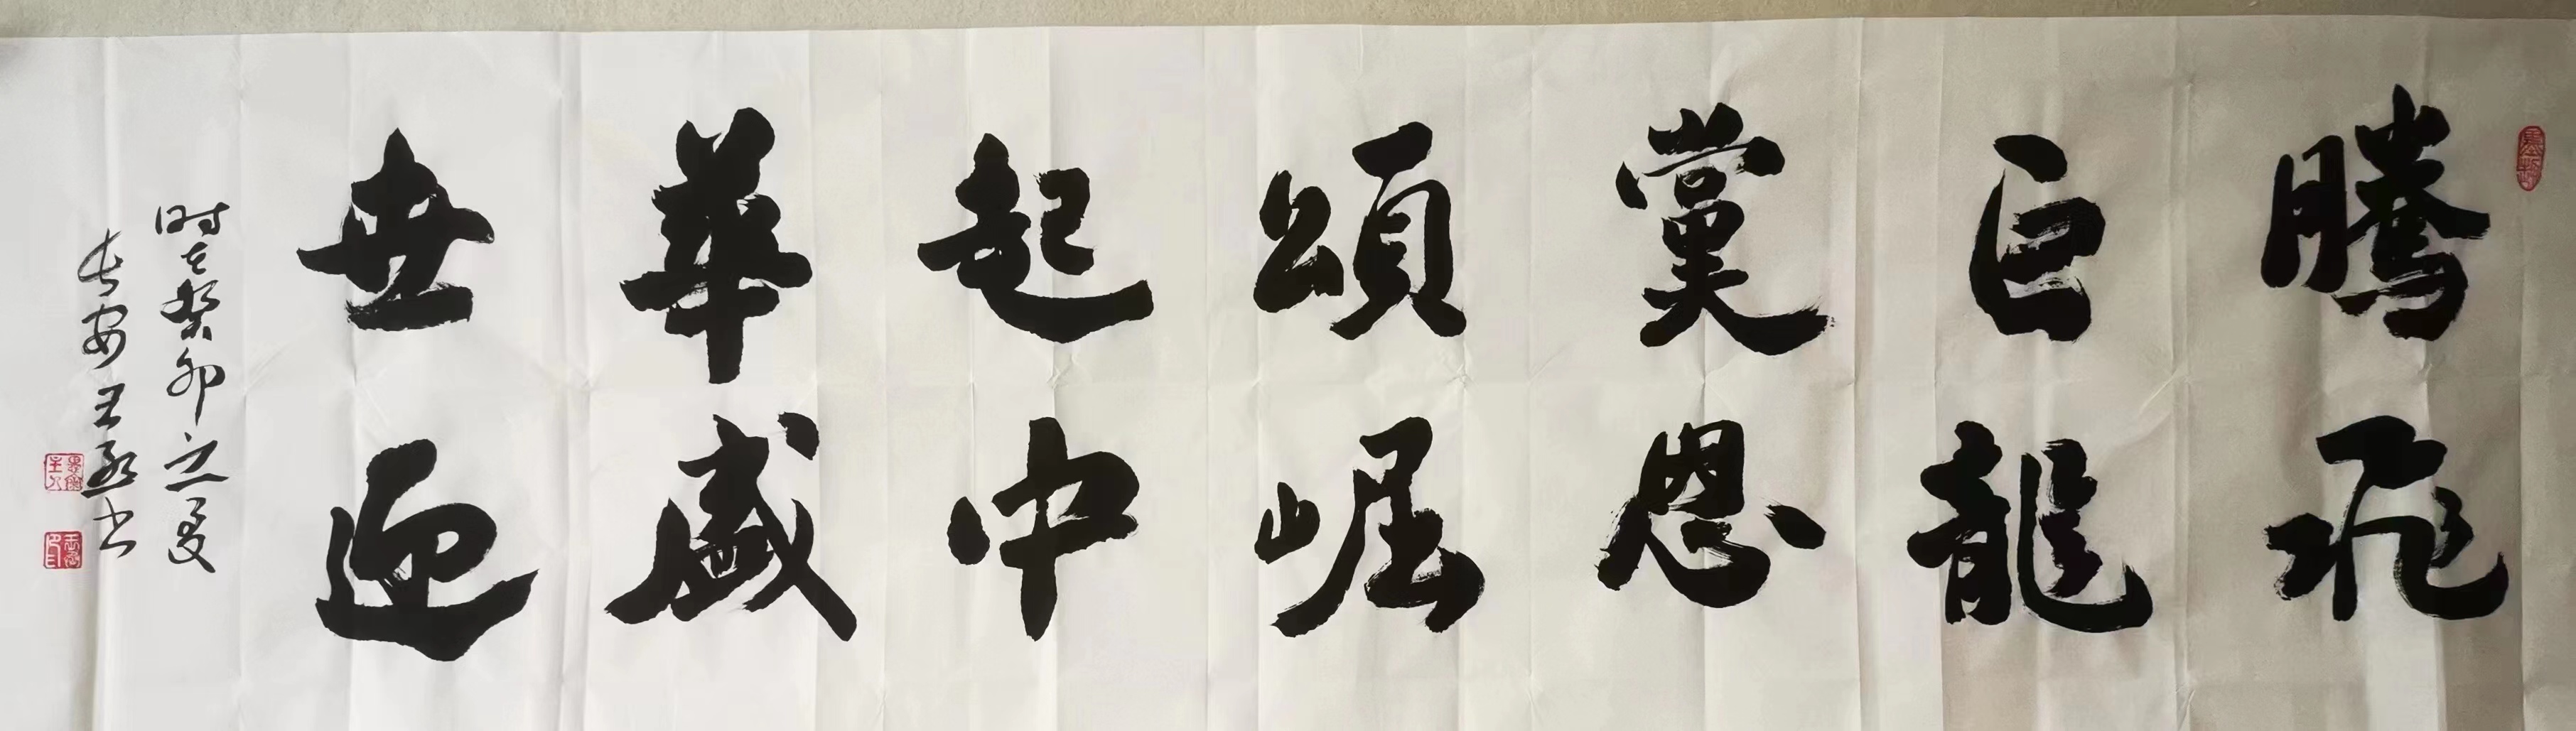 騰飛
巨龍
黨恩
頌崛
起中
華盛
世迎
时在癸卯之夏
长安王
书